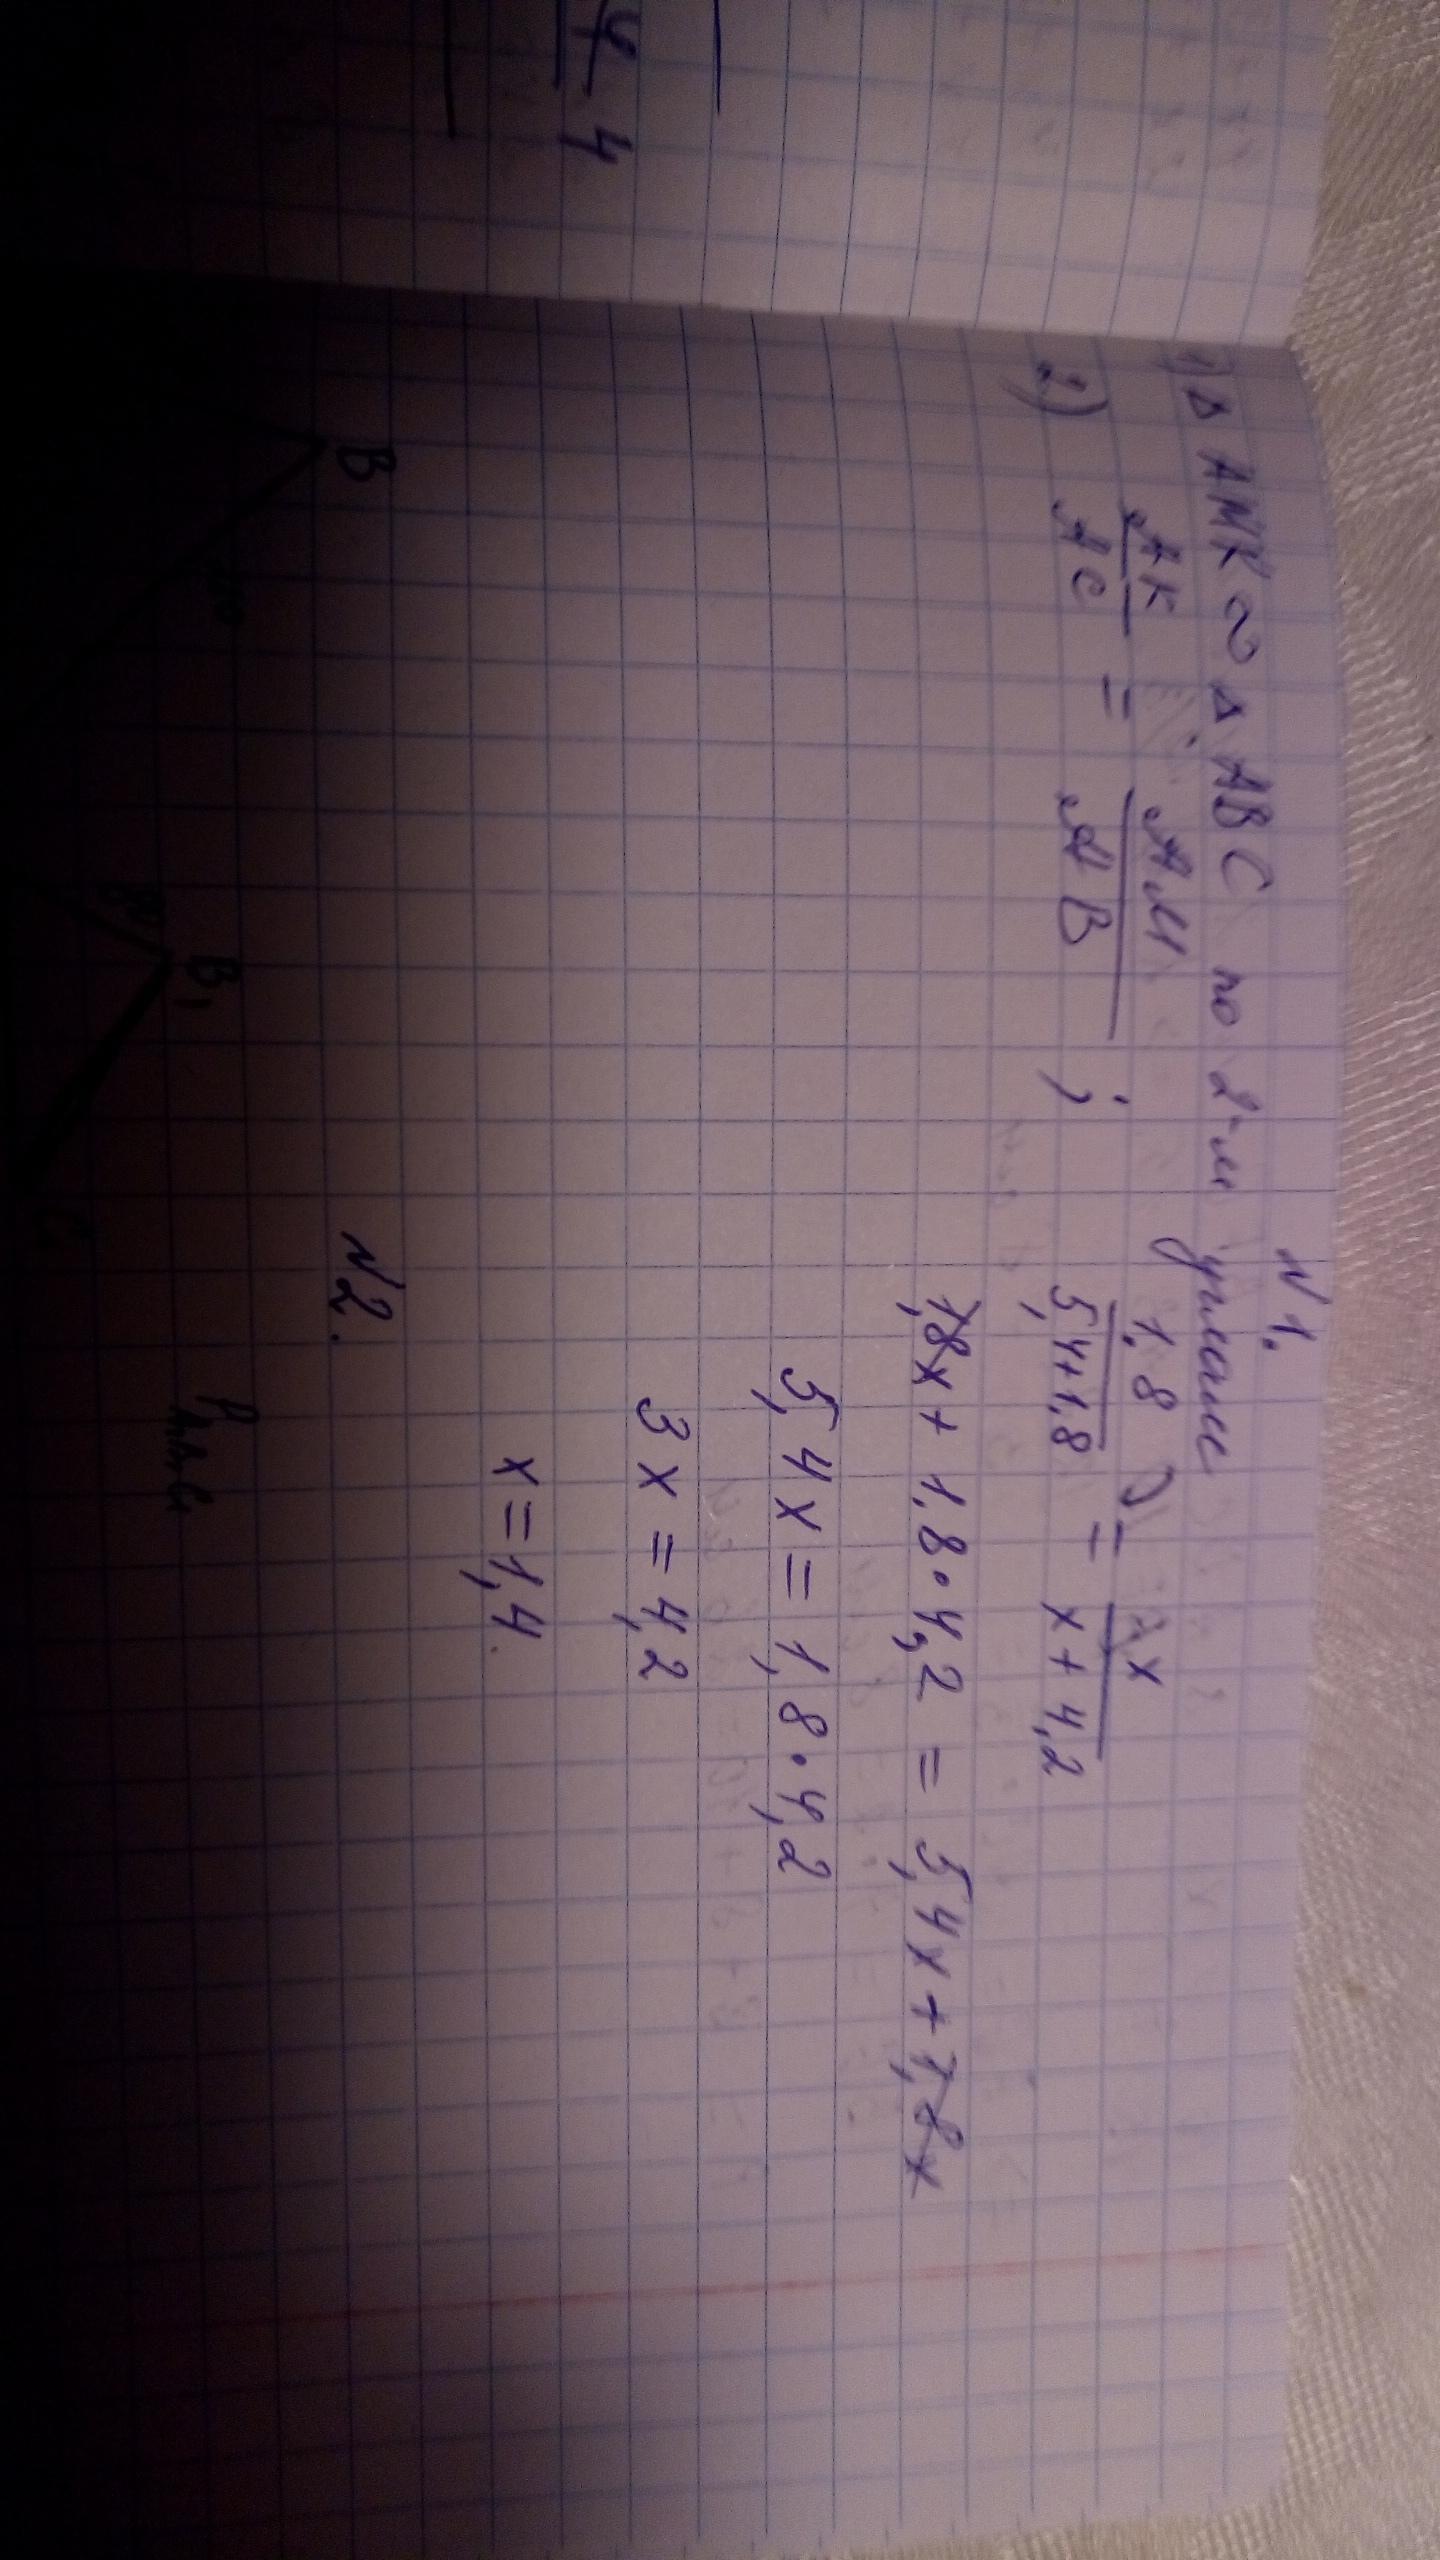 N 1.
1) Δ AMK ∾ Δ ABC по 2-м углам
2) AK/AC = AM/AB ; 1,8/5,4+1,8 = x/x+4,2
1,8x + 1,8 · 4,2 = 5,4x + 1,8x
5,4x = 1,8 · 4,2
3x = 4,2
x = 1,4.
N2.
B
B₁
C
4